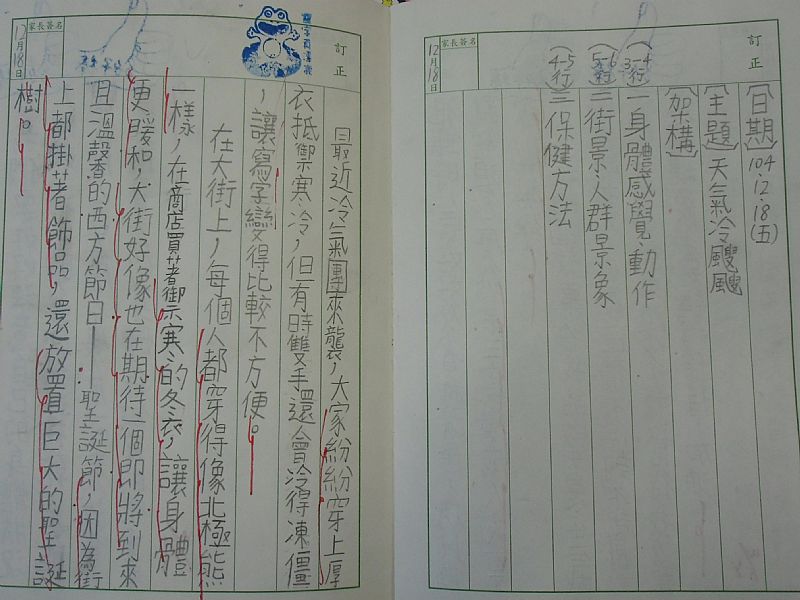 訂正
家長簽名
12月18日
〔日期〕104.12.18(五)
〔主題〕天氣冷颼颼
〔架構〕
(3-4行)一身體感覺、動作
(5-6行)二街景、人群景象
(4-5行)三保健方法
訂正
家長簽名
12月18日
最近冷氣團來襲，大家紛紛穿上厚
衣抵禦寒冷，但有時雙手還會冷得凍僵
，讓寫字變得比較不方便。
在大街上，每個人都穿得像北極熊
一樣，在商店買著禦寒的冬衣，讓身體
更暖和，大街好像也在期待一個即將到來
且溫馨的西方節日——聖誕節，因為街
上都掛著飾品，還放置巨大的聖誕
樹。